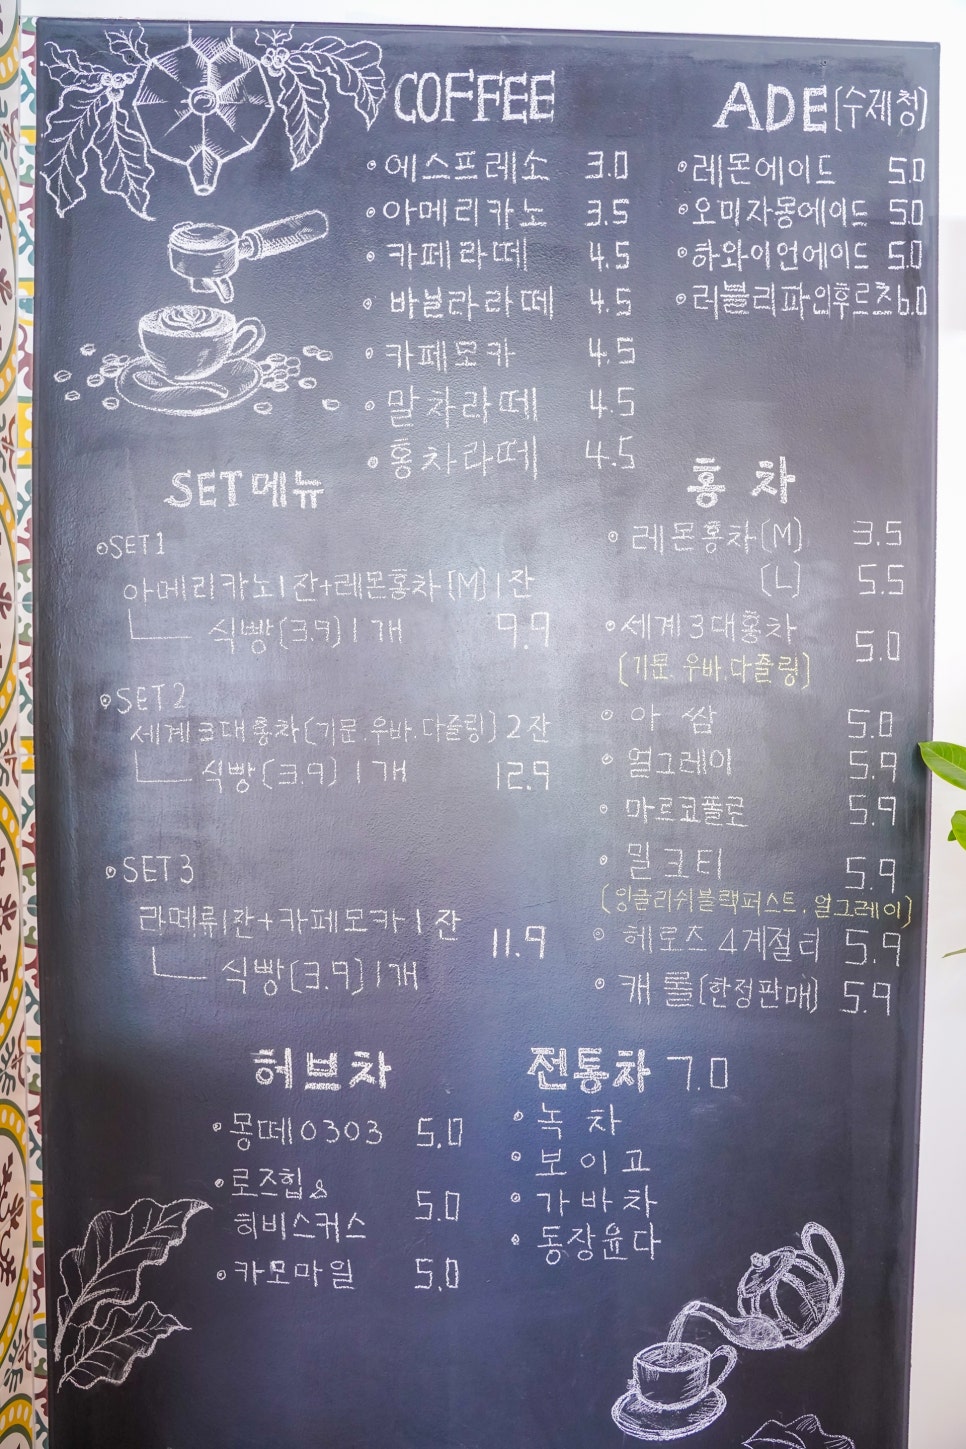 COFFEE
에스프레소 3.0
아메리카노 3.5
카페라떼 4.5
바닐라라떼 4.5
카페모카 4.5
말차라떼 4.5
홍차라떼 4.5
ADE(수제청)
레몬에이드 5.0
오미자몽에이드 5.0
하와이언에이드 5.0
러블리파인후르츠 6.0
SET메뉴
SET1
아메리카노1잔+레몬홍차(M)1잔
식빵(3.9)1개 9.9
SET2
세계3대홍차(기문.우바.다즐링)2잔
식빵(3.9)1개 12.9
SET3
라떼류1잔+카페모카1잔
식빵(3.9)1개 11.9
홍차
레몬홍차(M) 3.5
(L) 5.5
세계3대홍차 5.0
(기문.우바.다즐링)
아쌈 5.0
얼그레이 5.9
마르코폴로 5.9
밀크티 5.9
(잉글리쉬블랙퍼스트.얼그레이)
헤로즈4계절티 5.9
캐롤(한정판매) 5.9
허브차
몽떼0303 5.0
로즈힙&
히비스커스 5.0
카모마일 5.0
전통차 7.0
녹차
보이고
가바차
동장윤다